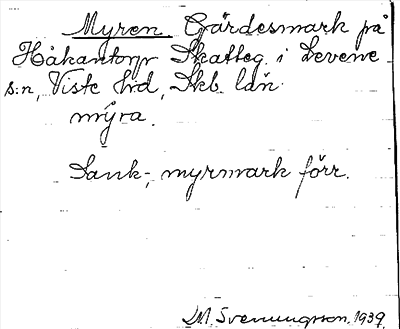 Myren Gärdesmark på
Håkantorp Skatteg. i Levene
s:n, Viste hd, Skb. län.
myra.
Sank-, myrmark förr.
M. Svenungsson, 1939.